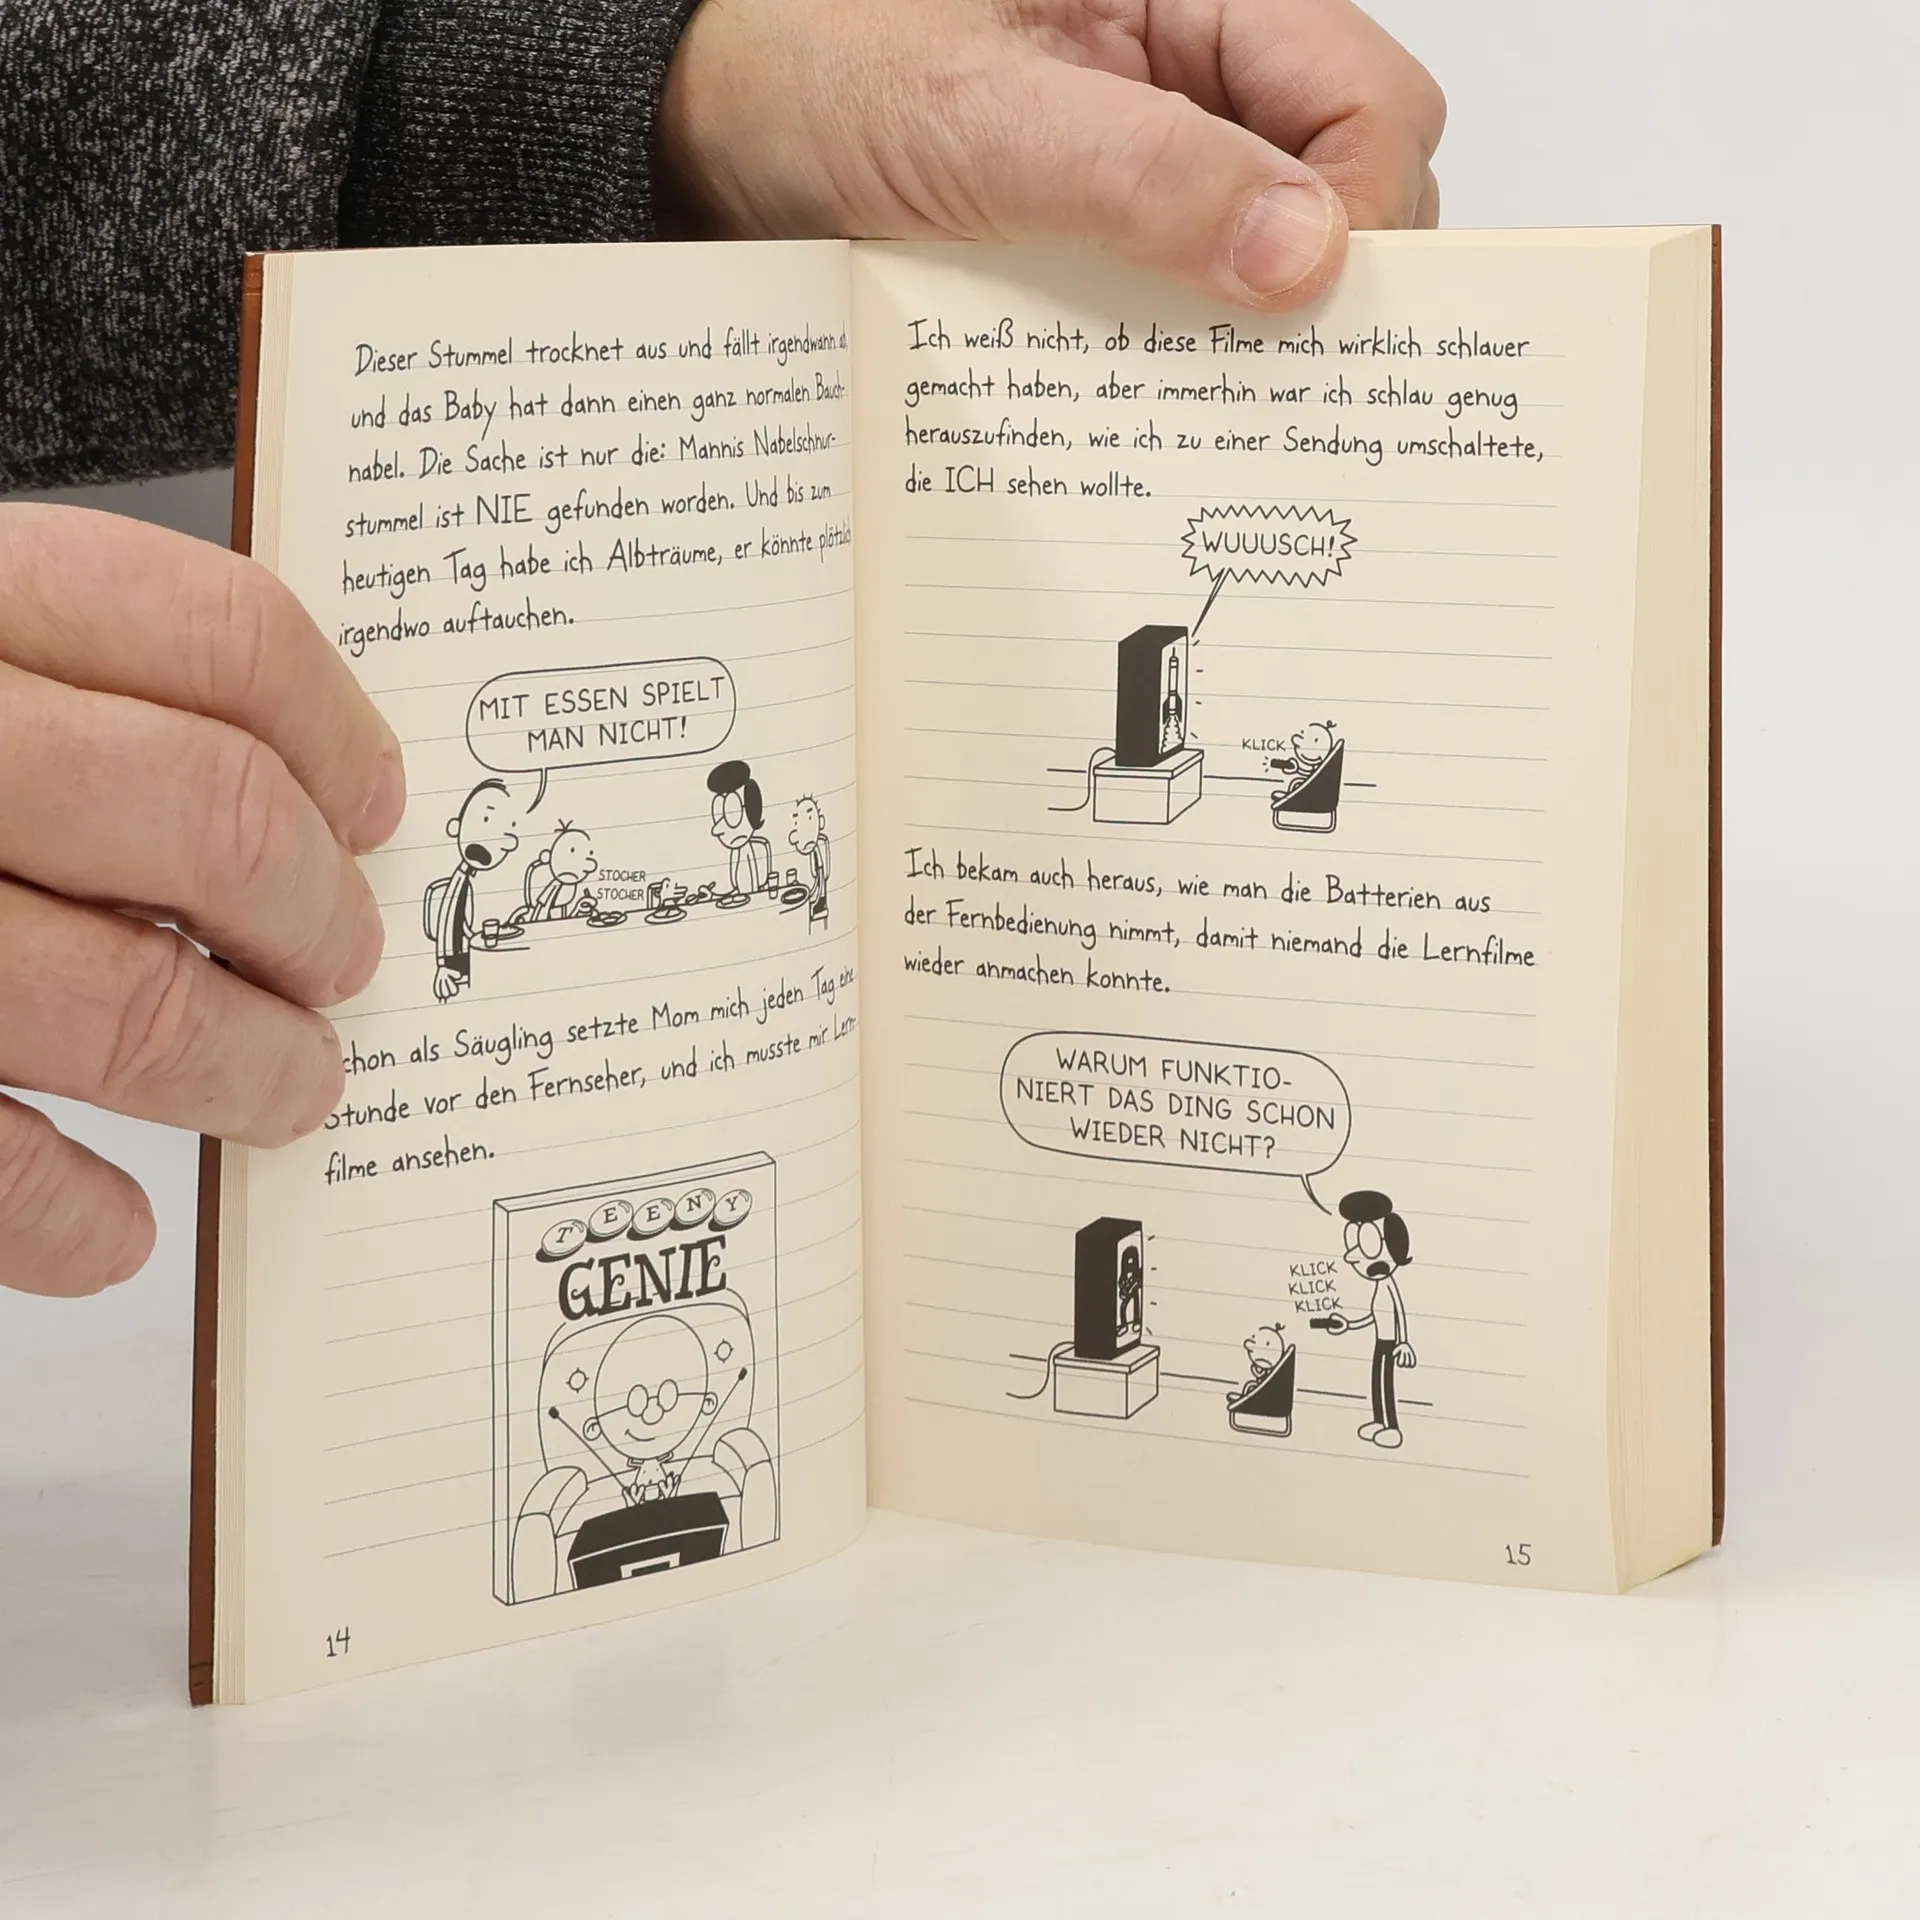 Dieser Stummel trocknet aus und fällt irgendwann ab,
und das Baby hat dann einen ganz normalen Bauch-
nabel. Die Sache ist nur die: Mannis Nabelschnur-
stummel ist NIE gefunden worden. Und bis zum
heutigen Tag habe ich Albträume, er könnte plötzlich
irgendwo auftauchen.
MIT ESSEN SPIELT
MAN NICHT!
STOCHER
STOCHER
chon als Säugling setzte Mom mich jeden Tag eine
Stunde vor den Fernseher, und ich musste mir Lern-
filme ansehen.
TEENY
GENIE
14
Ich weiß nicht, ob diese Filme mich wirklich schlauer
gemacht haben, aber immerhin war ich schlau genug
herauszufinden, wie ich zu einer Sendung umschaltete,
die ICH sehen wollte.
WUUUSCH!
KLICK
Ich bekam auch heraus, wie man die Batterien aus
der Fernbedienung nimmt, damit niemand die Lernfilme
wieder anmachen konnte.
WARUM FUNKTIO-
NIERT DAS DING SCHON
WIEDER NICHT?
KLICK
KLICK
KLICK
15